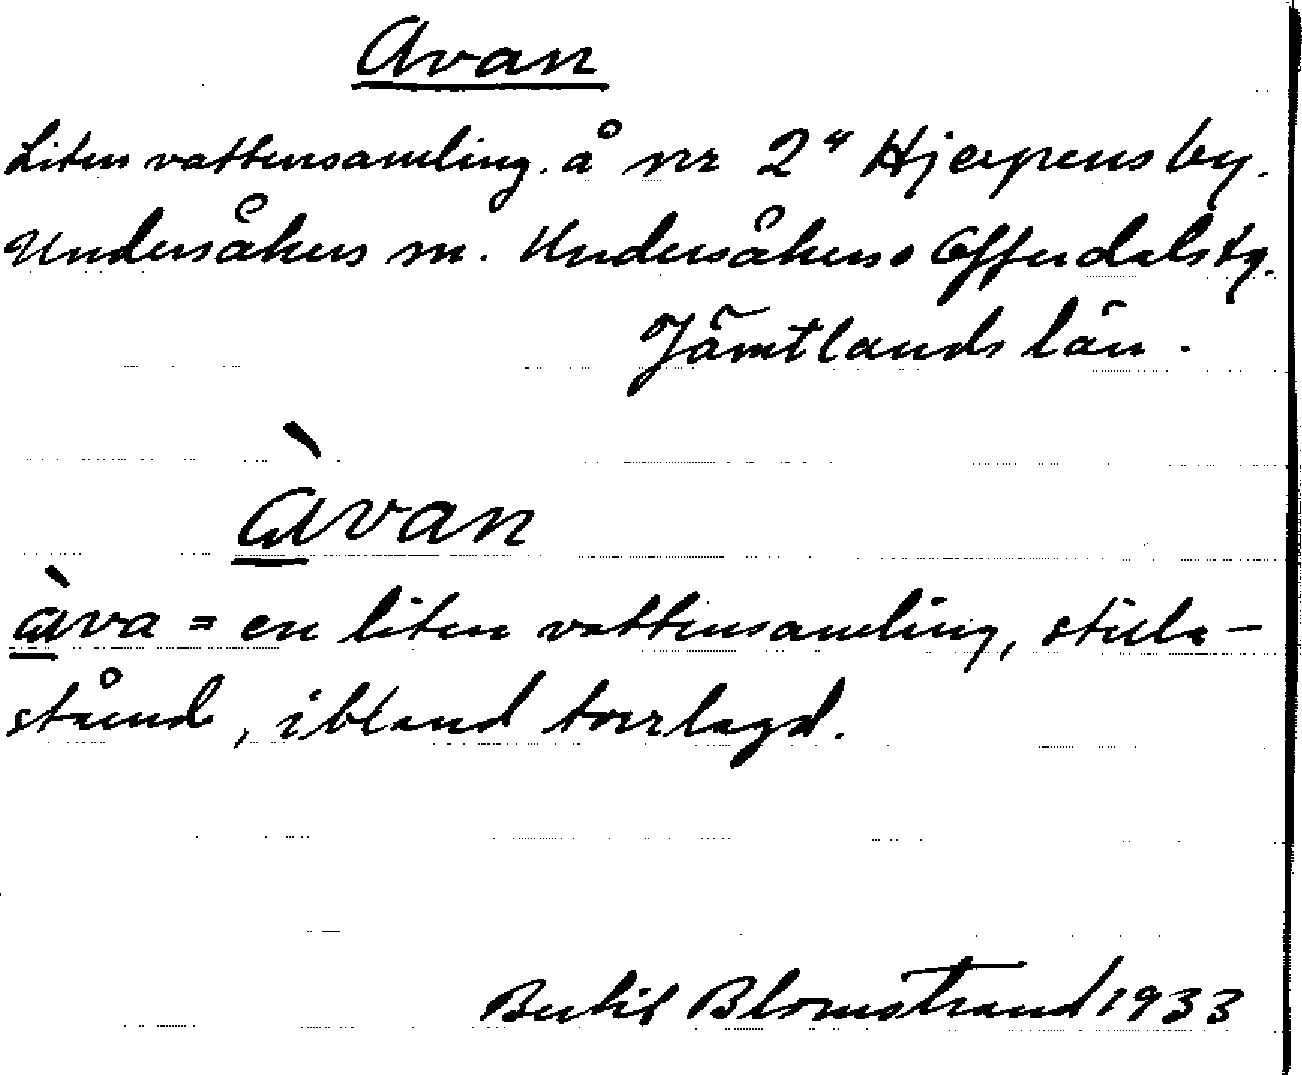 Avan
Liten vattensamling. å nr 2" Hjerpens by.
Undersåkers sn. Undersåkers o Offerdals tg.
Jämtlands län.
àvan
àva = en liten vattensamling, stilla-
stånd, ibland torrlagd.
Bertil Blomstrand 1933